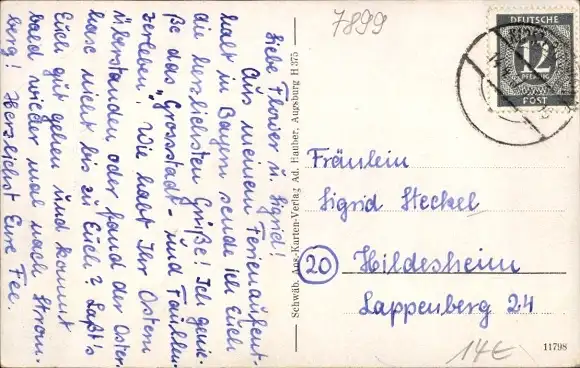 Liebe Flower u. Sigrid!
Aus meinem Ferienaufent-
halt in Bayern sende ich Euch
die herzlichsten Grüße! Ich genie-
ße das "Grosstadt- und Faullen-
zerleben. Wie habt Ihr Ostern
überstanden oder fand der Oster-
hase nicht bis zu Euch? Laßt's
Euch gut gehen und kommt
bald wieder mal nach Strom-
berg! Herzlichst Eure Fee.
Schwäb. Ans.-Karten-Verlag Ad. Hauber, Augsburg H 375
7899
DEUTSCHE
12
PFENNIG
POST
Fräulein
Sigrid Steckel
20 Hildesheim
Lappenberg 24
11798
14€